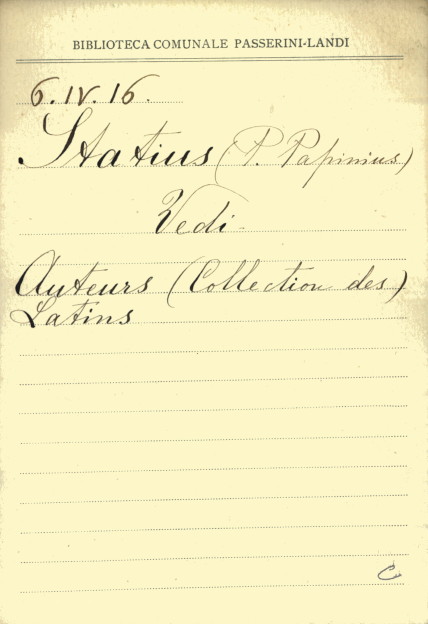 BIBLIOTECA COMUNALE PASSERINI-LANDI
6.IV.16.
Statius (P. Papinius)
Vedi
Auteurs (Collection des)
Latins